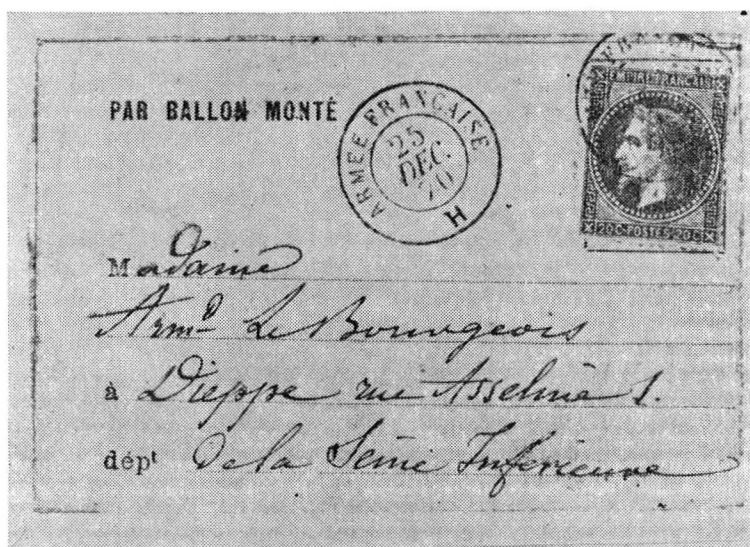 PAR BALLON MONTÉ
ARMÉE FRANÇAISE
25
DÉC.
70
H
EMPIRE FRANÇAIS
20 C-POSTES-20 C
Madame
Armd Le Bourgeois
à Dieppe rue Asseline 1.
dépt de la Seine Inférieure